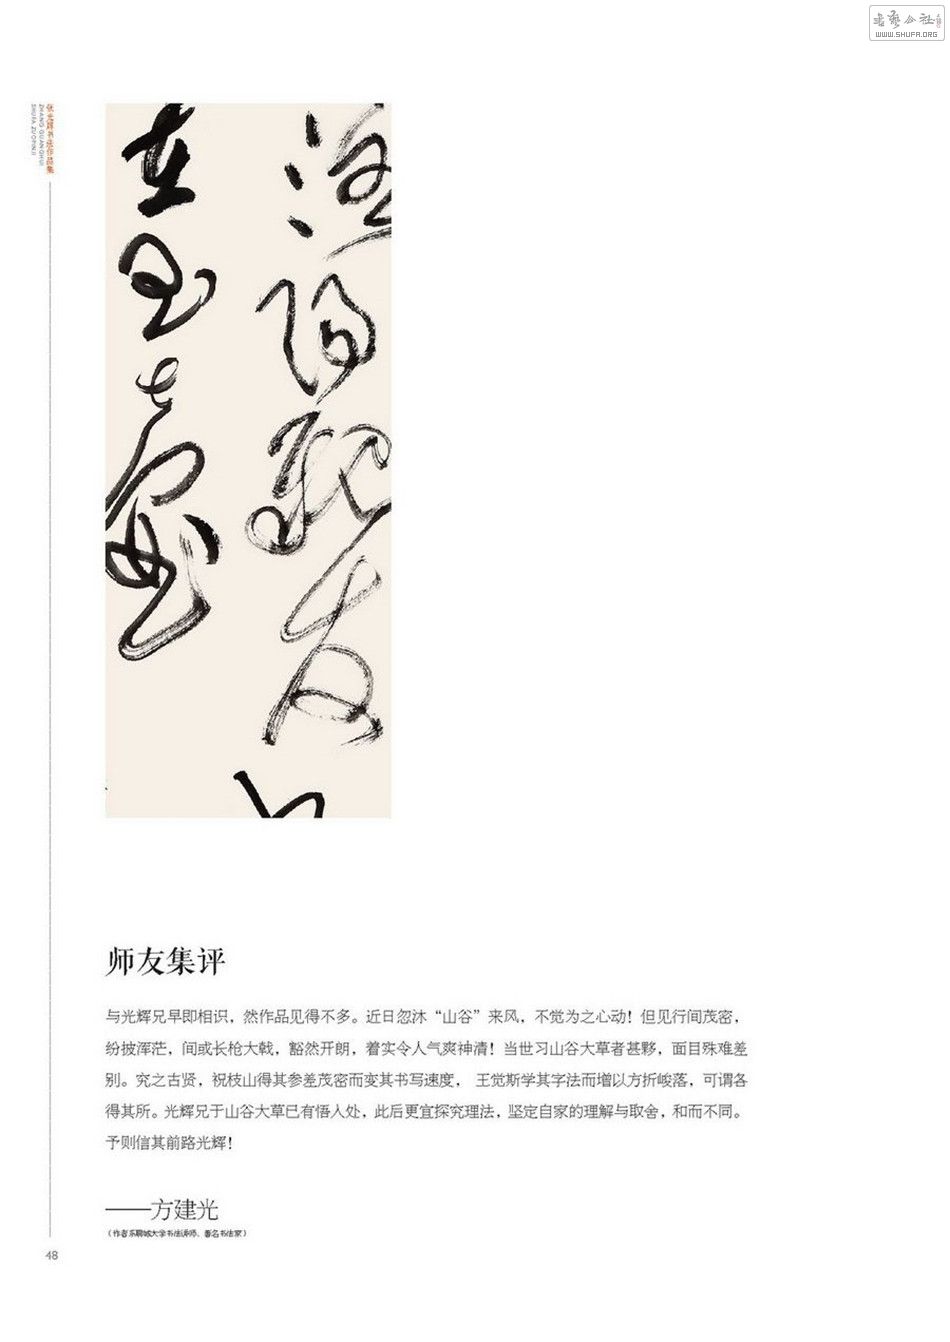 WWW.SHUFA.ORG
张光辉书法作品集
ZHANG GUANGHUI
SHUFA ZUOPINJI
师友集评
与光辉兄早即相识，然作品见得不多。近日忽沐“山谷”来风，不觉为之心动！但见行间茂密，
纷披浑茫，间或长枪大戟，豁然开朗，着实令人气爽神清！当世习山谷大草者甚夥，面目殊难差
别。究之古贤，祝枝山得其参差茂密而变其书写速度， 王觉斯学其字法而增以方折峻落，可谓各
得其所。光辉兄于山谷大草已有悟入处，此后更宜探究理法，坚定自家的理解与取舍，和而不同。
予则信其前路光辉！
——方建光
（作者系聊城大学书法讲师、著名书法家）
48